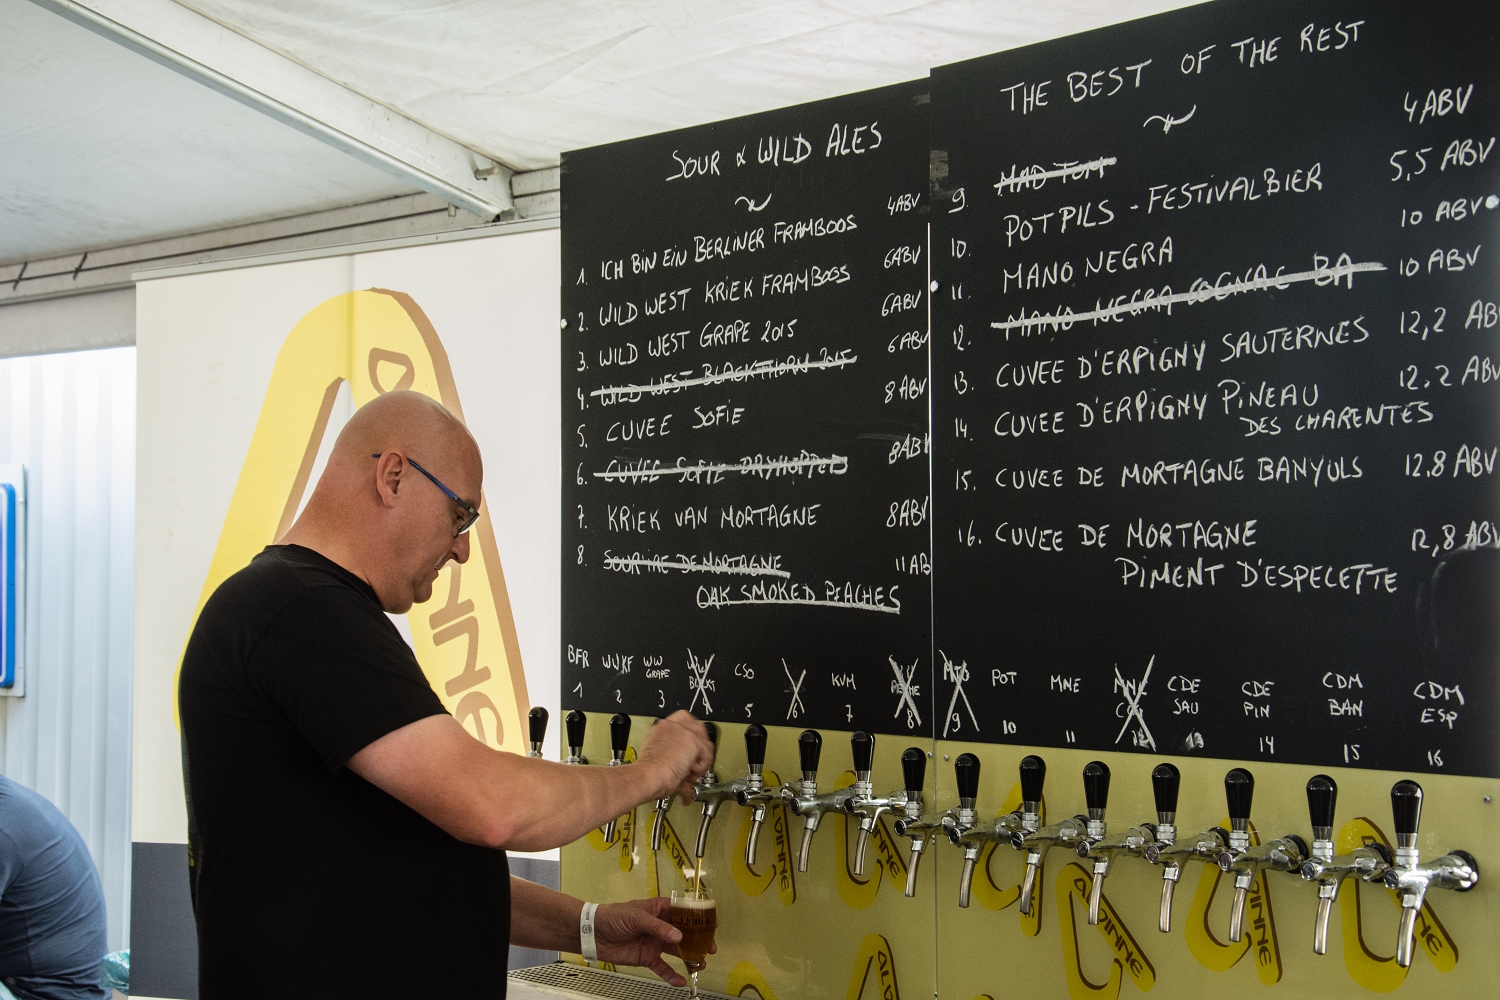 SOUR & WILD ALES
1. ICH BIN EIN BERLINER FRAMBOOS 4ABV
2. WILD WEST KRIEK FRAMBOOS 6ABV
3. WILD WEST GRAPE 2015 6ABV
4. WILD WEST BLACKTHORN 2015 6ABV
5. CUVEE SOFIE 8ABV
6. CUVEE SOFIE DRYHOPPED 8ABV
7. KRIEK VAN MORTAGNE 8ABV
8. SOUR'IRE DE MORTAGNE 11AB
OAK SMOKED PEACHES
BFR WWKF WW GRAPE CSO KVM
1 2 3 4 5 6 7 8
THE BEST OF THE REST
9. MAD TOM 4ABV
10. POTPILS - FESTIVALBIER 5,5 ABV
11. MANO NEGRA 10 ABV
12. MANO NEGRA COGNAC BA 10 ABV
13. CUVEE D'ERPIGNY SAUTERNES 12,2 AB
14. CUVEE D'ERPIGNY PINEAU 12.2 ABV
DES CHARENTES
15. CUVEE DE MORTAGNE BANYULS 12.8 ABV
16. CUVEE DE MORTAGNE 12,8 ABV
PIMENT D'ESPELETTE
MTO POT MNE MNE CDE SAU CDE PIN CDM BAN CDM ESP
9 10 11 12 13 14 15 16
ALVINNE
ALVINNE
ALVINNE
ALVINNE
ALVINNE